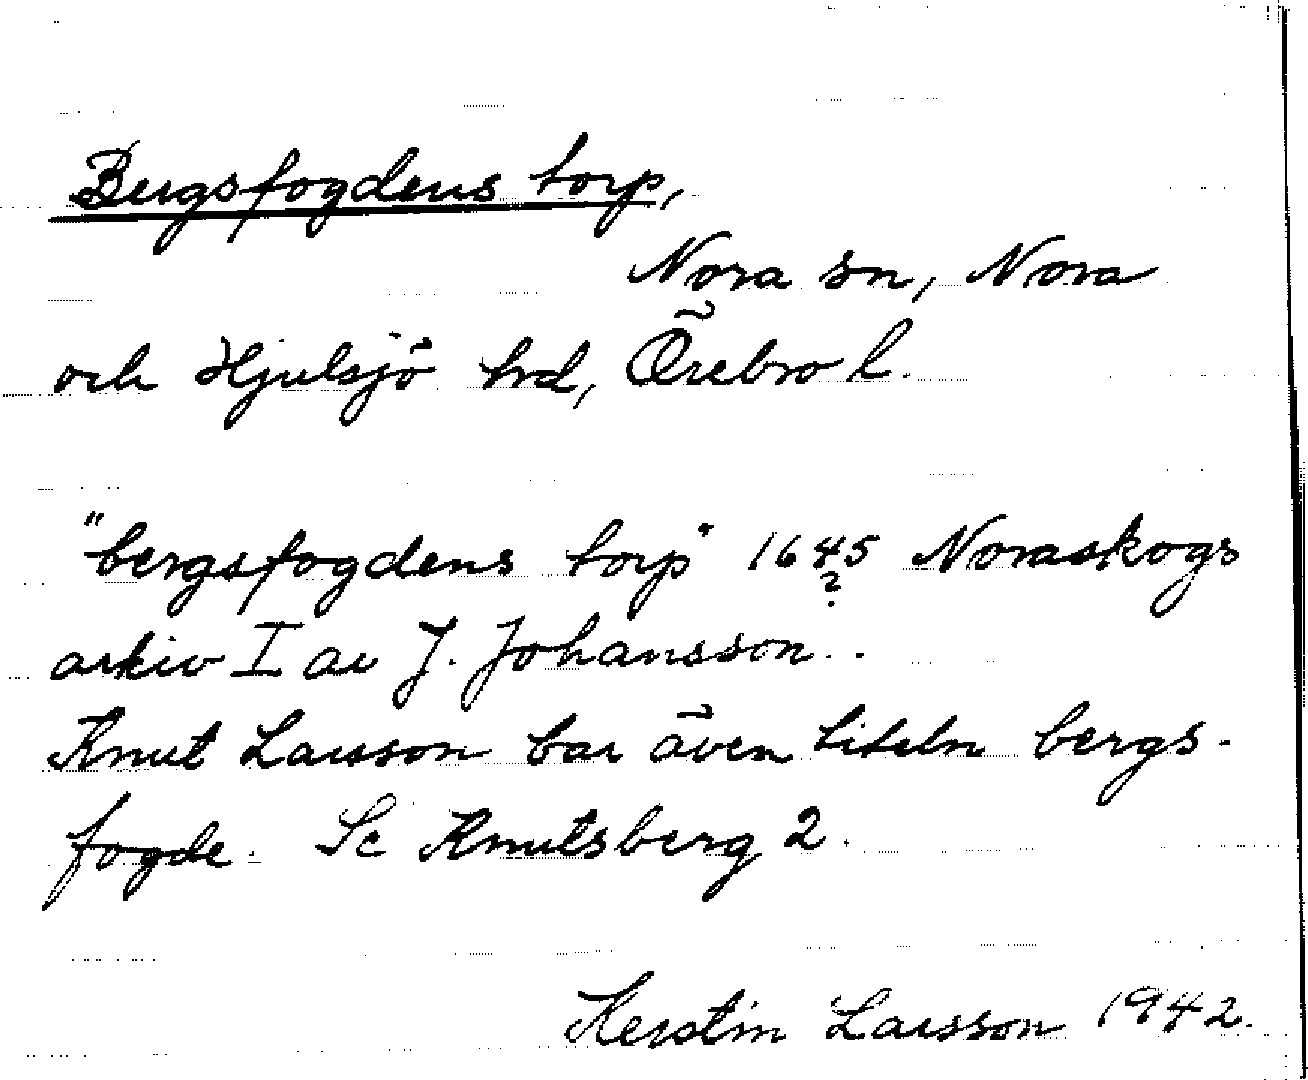 Bergsfogdens torp,
Nora sn, Nora
och Hjulsjö hrd, Örebro l.
"bergsfogdens torp" 1645 Noraskogs
?
arkiv I av J. Johansson.
Knut Larsson bar även titeln bergs-
fogde. Se Knutsberg 2.
Kerstin Larsson 1942.